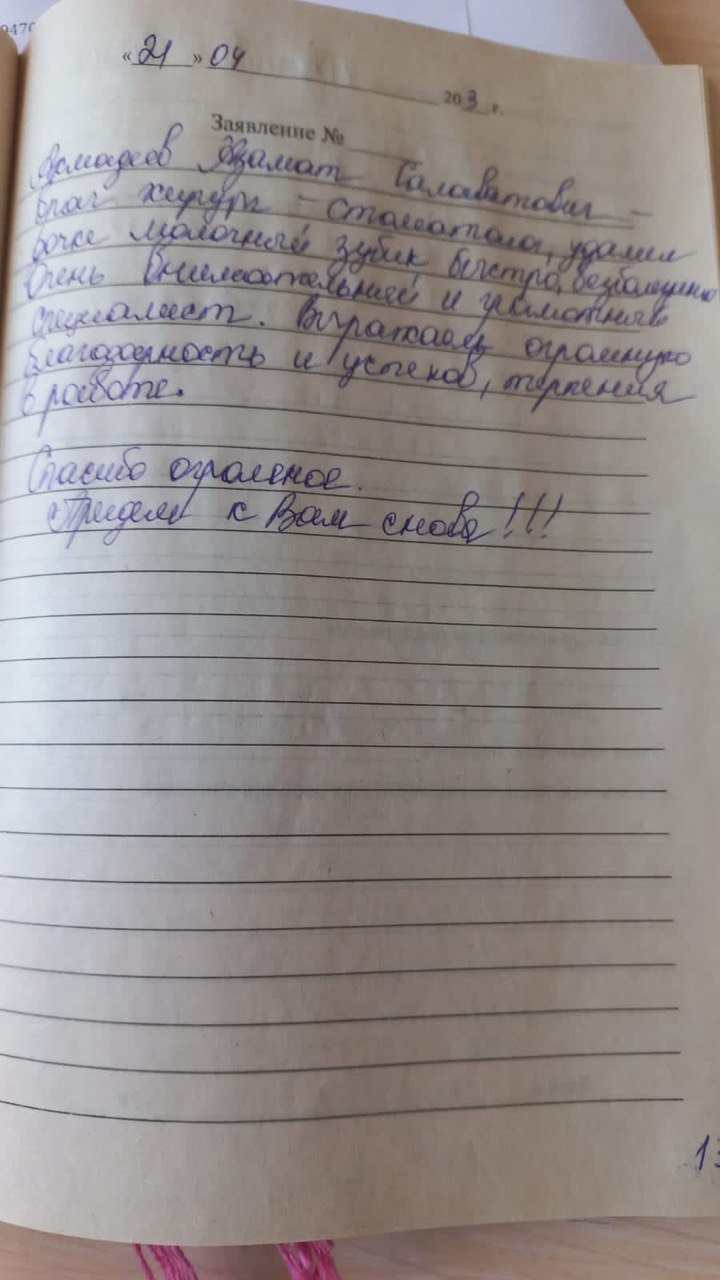 9470
« 21 » 04 203 г.
Заявление №
Ахмадеев Азамат Салаватович –
врач хирург – стоматолог, удалил
дочке молочный зубик быстро, безболезненно
Очень внимательный и грамотный
специалист. Выражаем огромную
благодарность и успехов, терпения
в работе.
Спасибо огромное.
Придем к Вам снова!!!
13